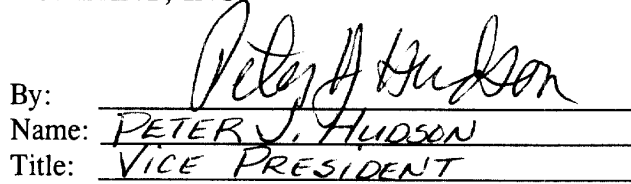 By: Peter J Hudson
Name: PETER J. HUDSON
Title: VICE PRESIDENT